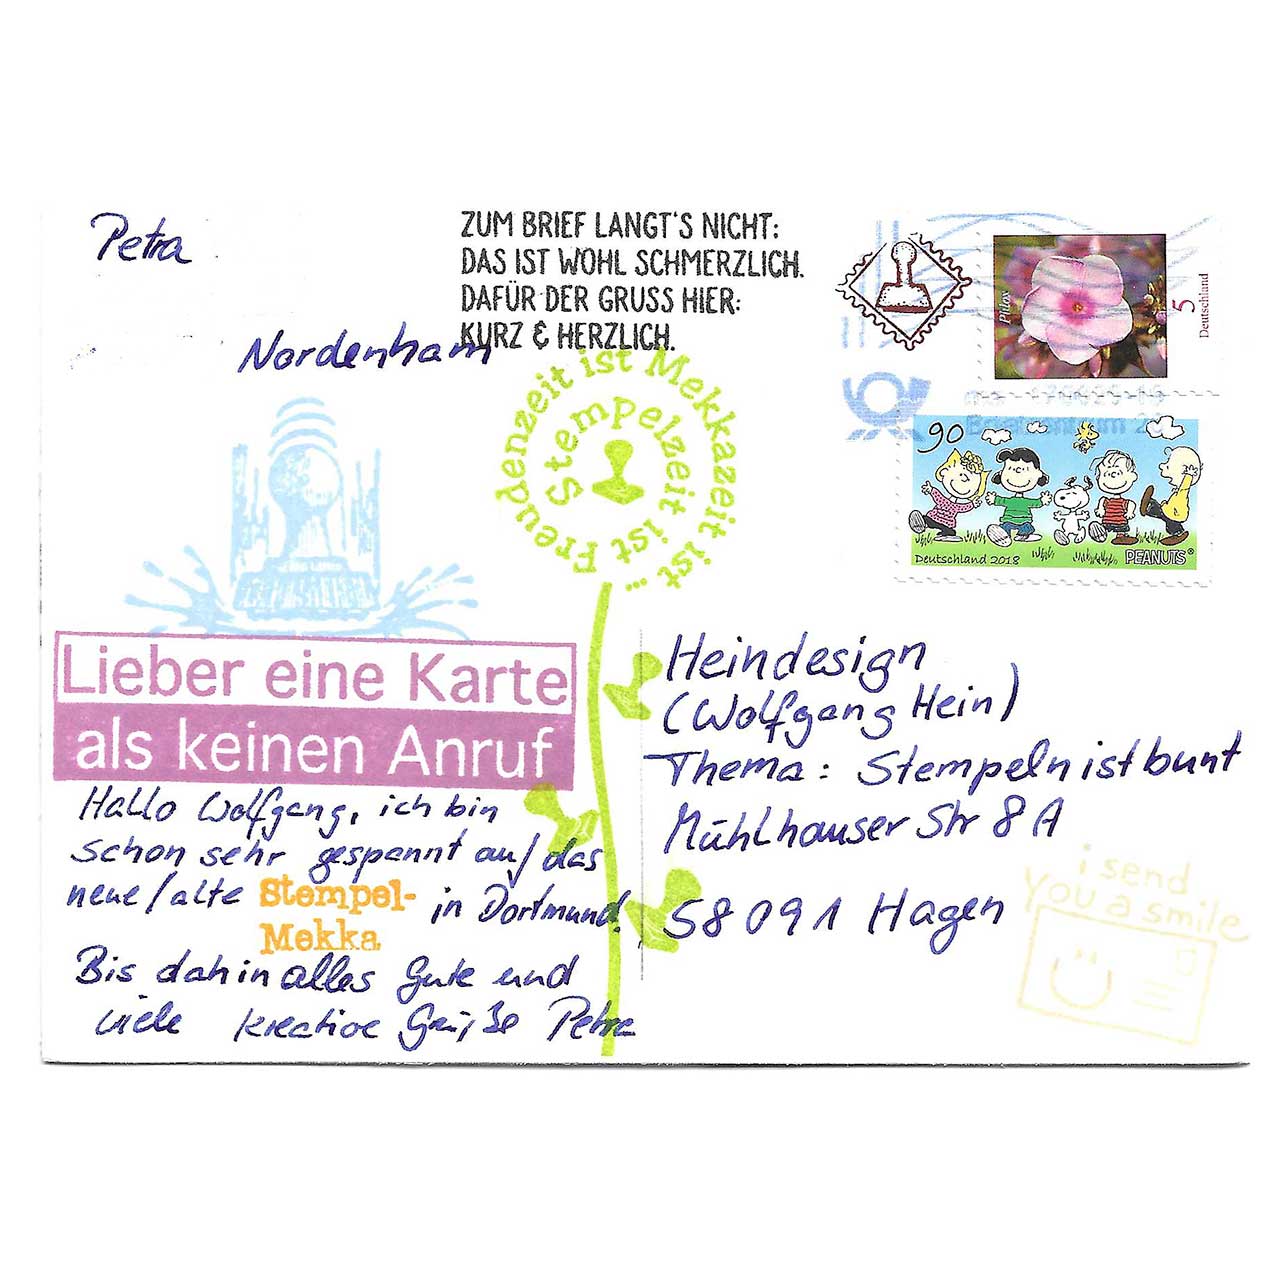 Petra
Nordenham
ZUM BRIEF LANGT'S NICHT:
DAS IST WOHL SCHMERZLICH.
DAFÜR DER GRUSS HIER:
KURZ & HERZLICH.
Phlox
5
Deutschland
90
Deutschland 2018
PEANUTS®
Stempelzeit ist Freudenzeit ist Mekkazeit ist ...
Lieber eine Karte
als keinen Anruf
Hallo Wolfgang, ich bin
schon sehr gespannt auf das
neue/alte Stempel-
Mekka in Dortmund.
Bis dahin alles Gute und
viele kreative Grüße Petra
Heindesign
(Wolfgang Hein)
Thema: Stempeln ist bunt
Mühlhauser Str 8A
58091 Hagen
i send
you a smile